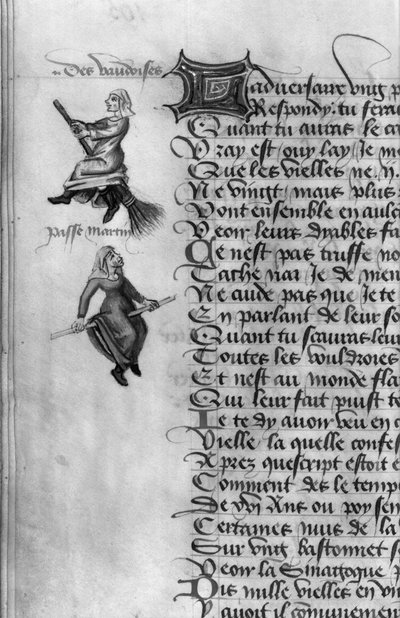 Des vaudoises
Ladversaire vng p
Respondy: tu feras
Quant tu auras le ca
Vray est ouy lay Je me
Que les vielles ne .ii.
Ne vingt mais plus
Vont ensemble en aulc
passe Martin
Veoir leurs dyables fa
Ce nest pas truffe no
Je de men
Ne cuide pas que Je te
En parlant de leur so
Quant tu scauras leur
Toutes les vouldroies
Et nest au monde fla
Qui leur fait puist te
Je te dy auoir veu en c
Vielle la quelle confes
Aprez quescript estoit e
Comment des le temp
De xvi Ans ou poy sen
Certaines nuis de la
Sur vng bastonnet s
Veoir la Sinaggogue p
Dix mille vielles en vn
Y auoit il communemen